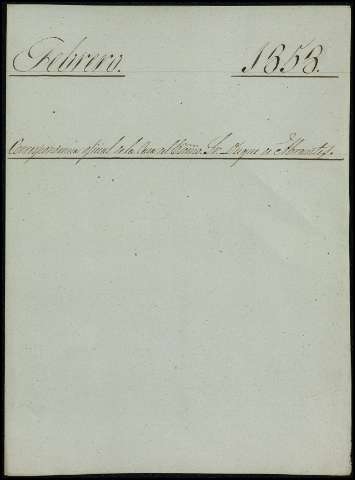 Febrero. 1858.
Correspondencia oficial de la Casa del Excmo. Sr. Duque de Abrantes.